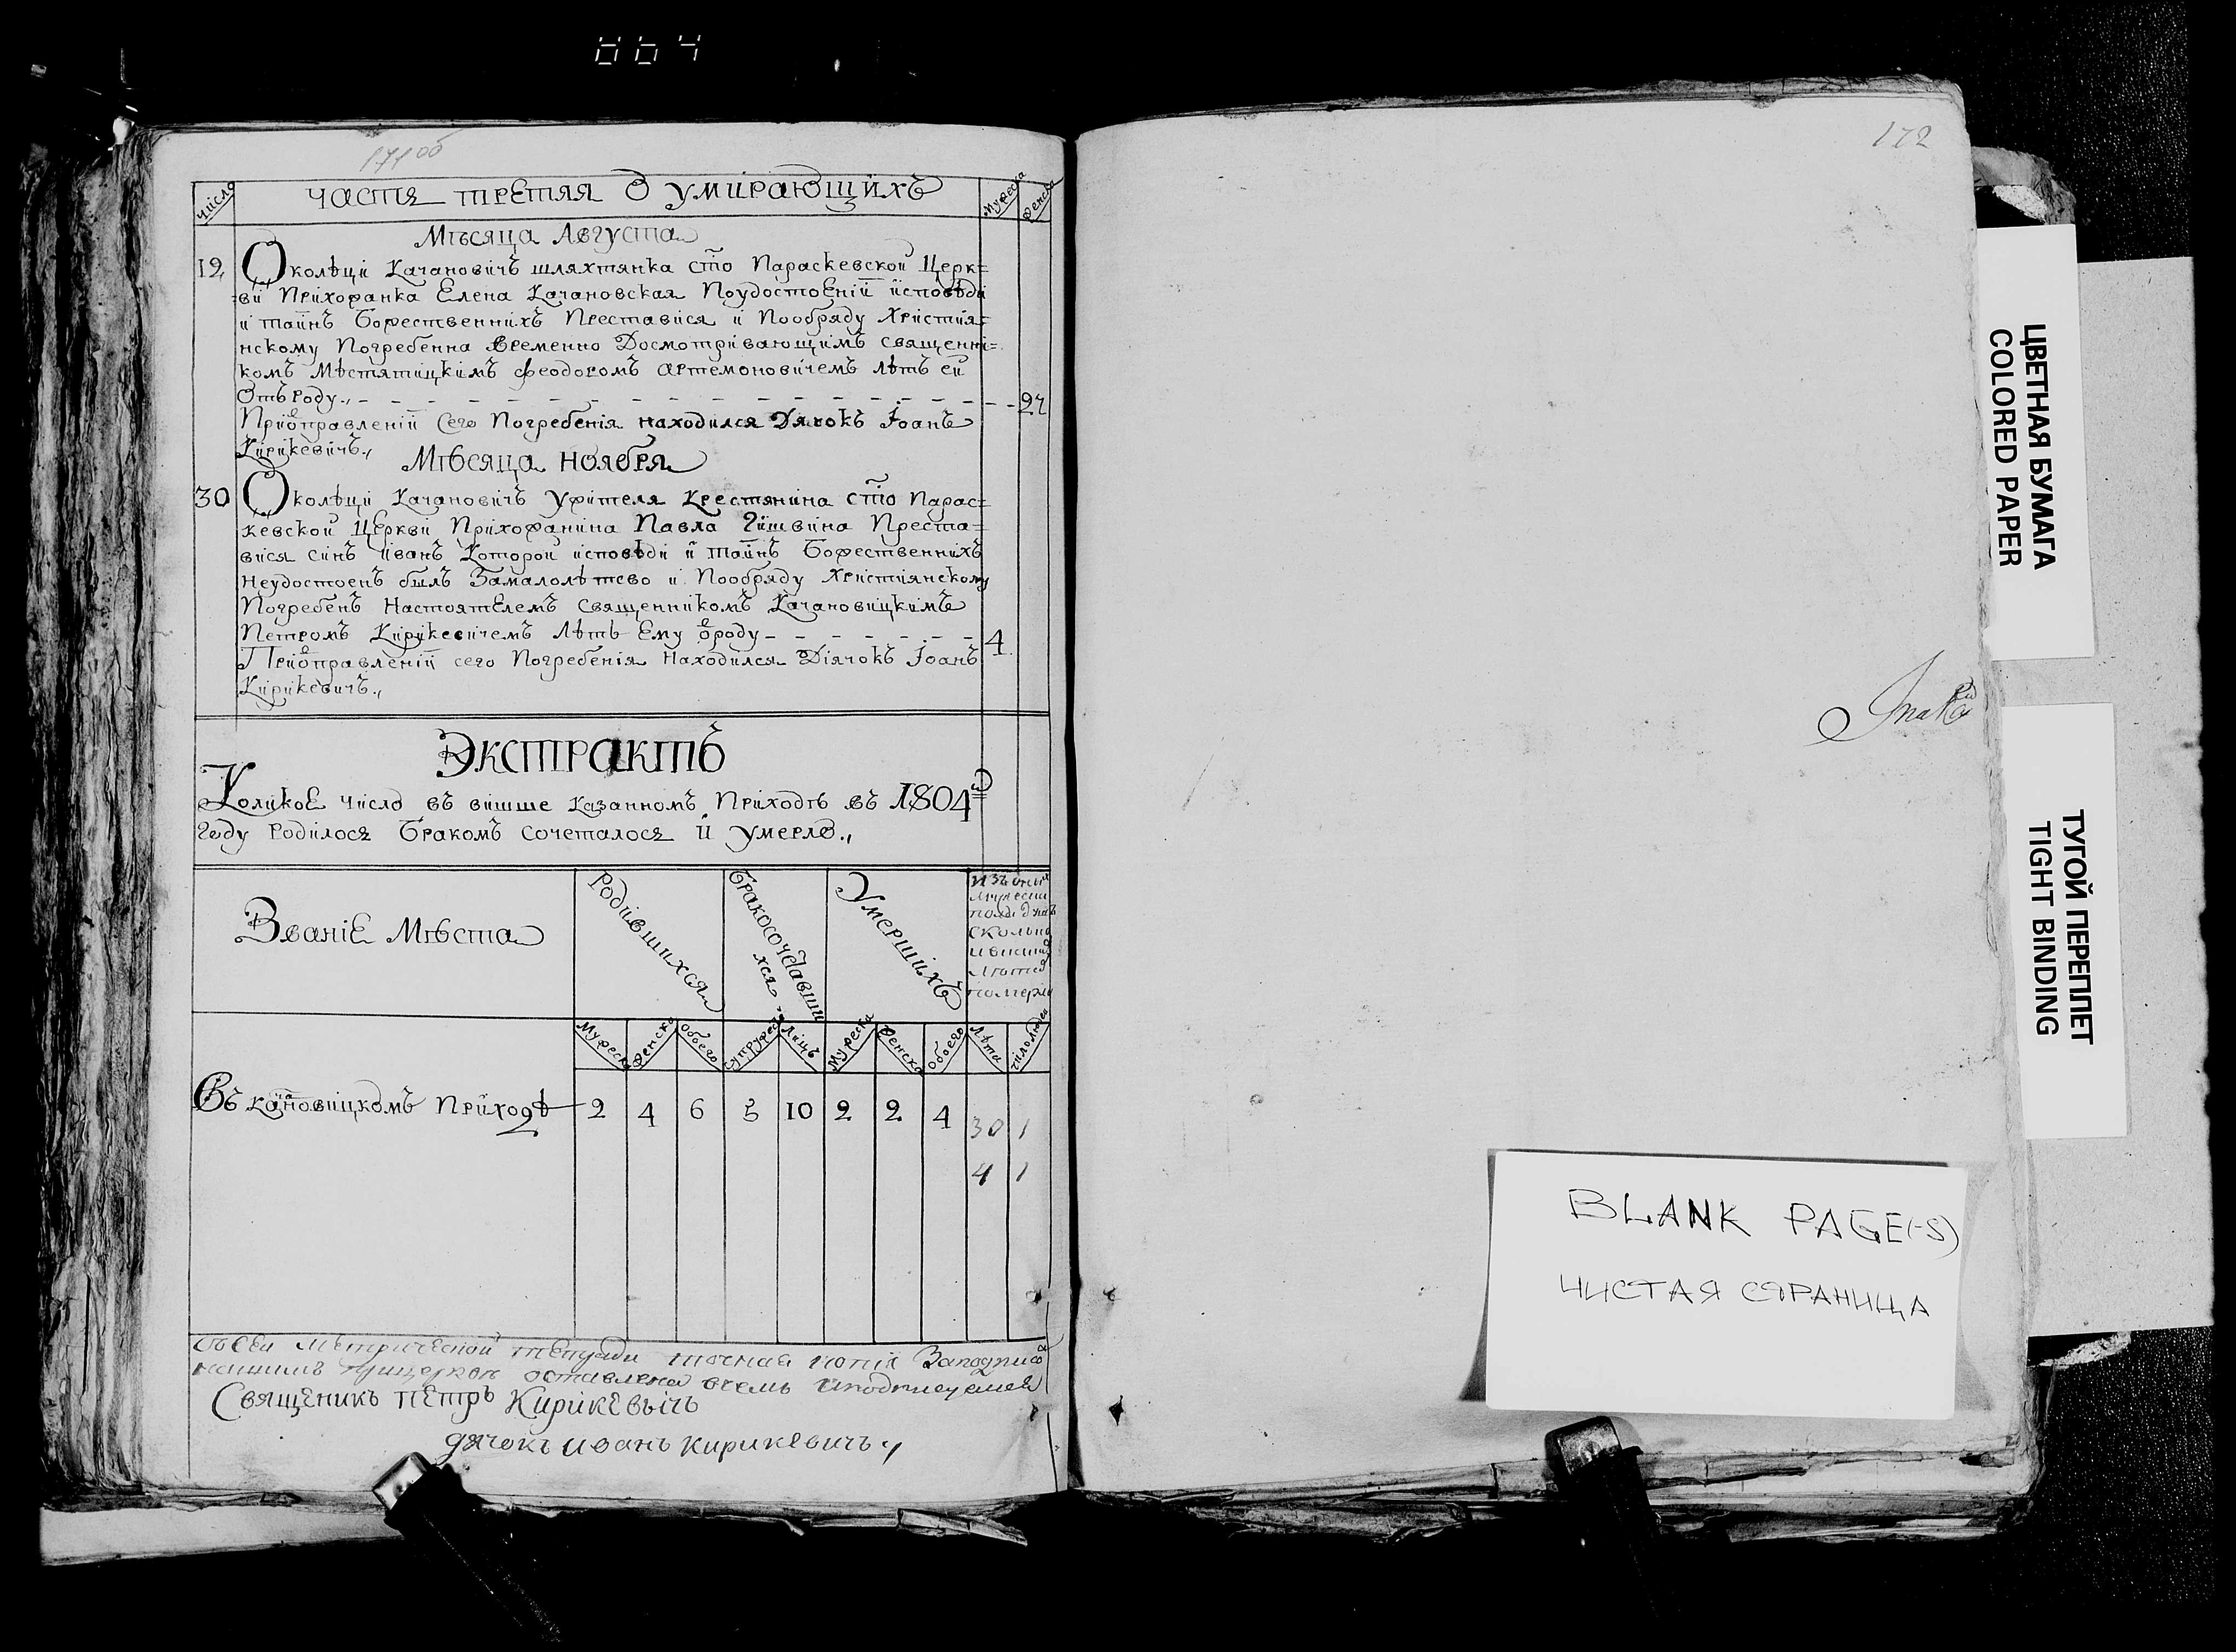 664
171об
число
ЧАСТЯ ТРЕТЯЯ О УМИРАЮЩИХЪ
Мужеска
Женска
Мѣсяца Августа
19, Околѣци Качановичъ шляхтянка сто Параскевской Церк=
=ви Прихожанка Елена Качановская Поудостоении исповѣди
и таинъ Божественнихъ Преставися и Пообряду Христия=
нскому Погребенна Временно Досмотривающимъ священни=
комъ Мѣстятицкимъ Феодоромъ Артемоновичемъ лѣтъ ей
Отъ Роду., 27
Приотправлении Сего Погребения находился Дячокъ Іоанъ
Кирикевичъ.,
Мѣсяца Ноября
30 Околѣци Качановичъ Ужителя Крестянина сто Парас=
кевской Церкви Прихожанина Павла Преста=
вися синъ Иванъ Которой исповѣди и таинъ Божественнихъ
Неудостоенъ былъ Замалолѣтсво и Пообряду Християнскому
Погребенъ Настоятелемъ священникомъ Качановицкимъ
Петромъ Кирикевичемъ Лѣтъ Ему ороду 4
Приотправлении сего Погребенія Находился Діячокъ Іоанъ
Кирикевичъ.,
ЭКСТРАКТЪ
Коликое число въ вишше казанномъ Приходѣ въ 1804
Году Родилося Бракомъ сочеталося и умерло.,
Званіе Мѣста
Родившихся
Бракосочетавши
хся
Умершихъ
Мужеска Женска Обоего супружес Лицъ Мужеска Женска Обоего Лѣта
Въ качановицкомъ Приходѣ 2 4 6 5 10 2 2 4 30 1
4 1
Метрической точная копія
оставлена
Священикъ Петръ Кирикевычъ
дячокъ Иоанъ Кирикевичъ.,
172
ЦВЕТНАЯ БУМАГА
COLORED PAPER
ТУГОЙ ПЕРЕПЛЕТ
TIGHT BINDING
BLANK PAGE(-S)
ЧИСТАЯ СТРАНИЦА